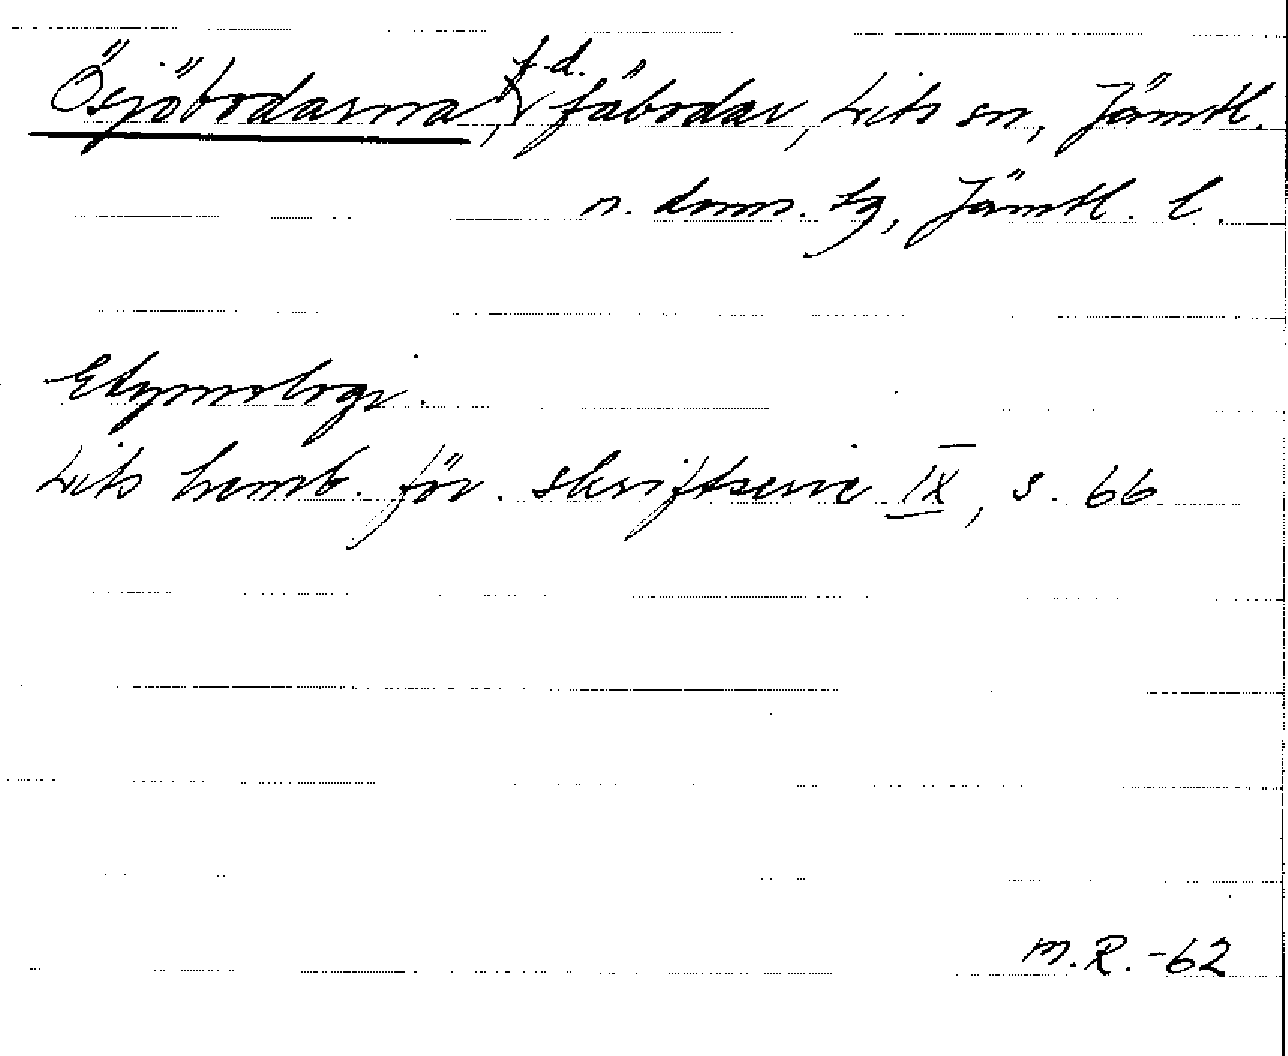 Ösjöbodarna, f.d. fäbodar, Lits sn, Jämtl.
n. doms. tg, Jämtl. l.
Etymologi.
Lits hemb. för. skriftserie IX, s. 66
M.R. -62